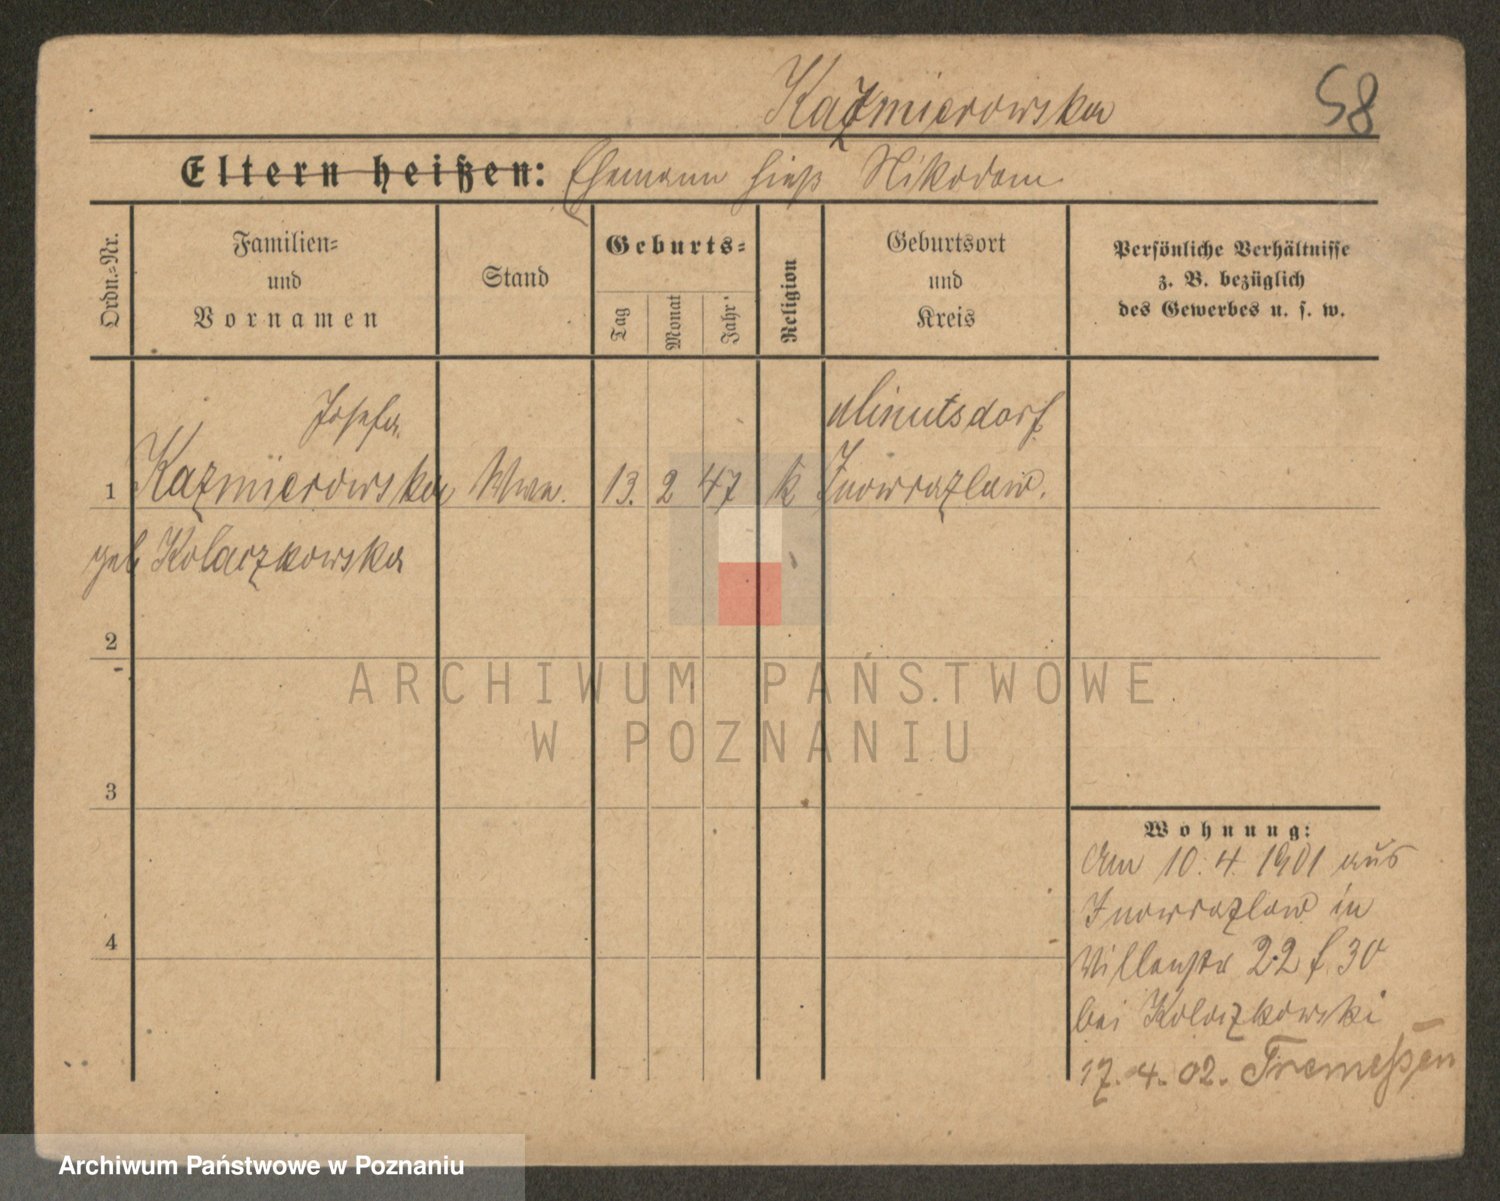 Kazmierowska
58
Eltern heißen: Ehemann hieß Nikodem
Ordn.=Nr.
Familien=
und
Vornamen
Stand
Geburts=
Tag
Monat
Jahr
Religion
Geburtsort
und
Kreis
Persönliche Verhältnisse
z. B. bezüglich
des Gewerbes u. s. w.
Josefa
1 Kazmierowska Wwe. 13. 2 47 k Inowrazlaw.
geb Kolaczkowska
2
3
4
Wohnung:
Am 10. 4. 1901 aus
Inowrazlaw in
22 f 30
bei Kolaczkowski
17. 4. 02. Tremessen
ARCHIWUM PAŃSTWOWE
W POZNANIU
Archiwum Państwowe w Poznaniu